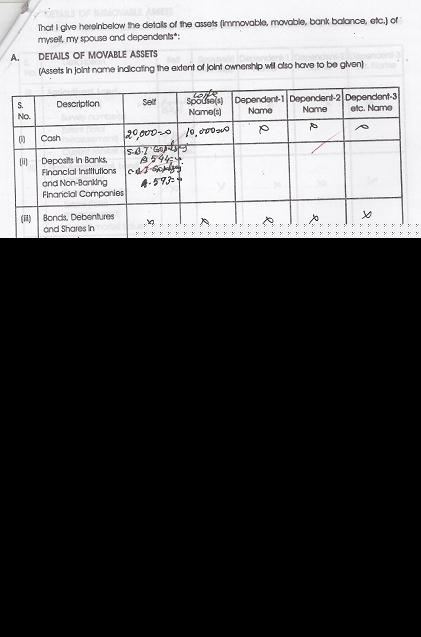 That I give hereinbelow the details of the assets (immovable, movable, bank balance, etc.) of
myself, my spouse and dependents*:
A. DETAILS OF MOVABLE ASSETS
(Assets in joint name indicating the extent of joint ownership will also have to be given)
S. No. Description Self Spouse(s) Name(s) Dependent-1 Name Dependent-2 Name Dependent-3 etc. Name
(i) Cash 20,000=00 10,000=00
(ii) Deposits in Banks,
Financial Institutions
and Non-Banking
Financial Companies
(iii) Bonds, Debentures
and Shares in